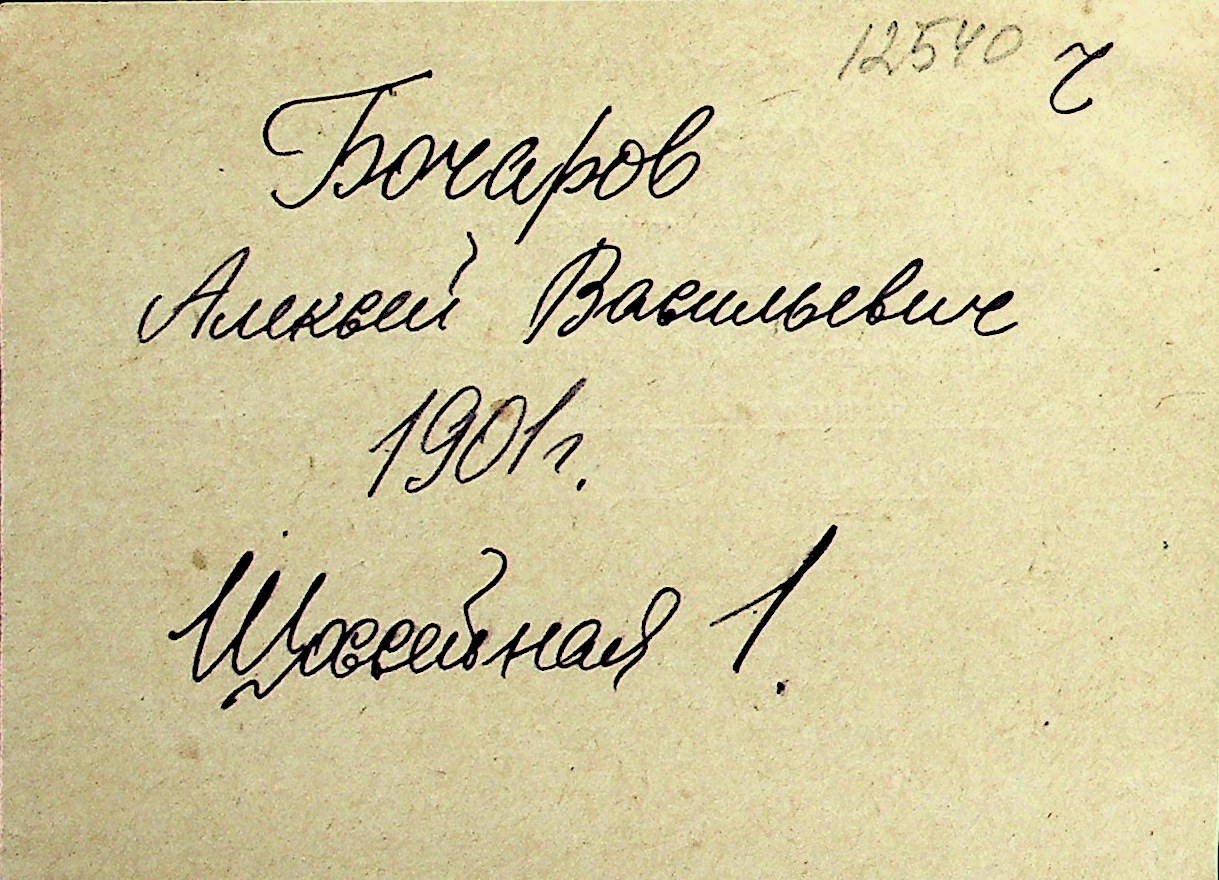 12540 ч
Бочаров
Алексей Васильевич
1901г.
Шоссейная 1.